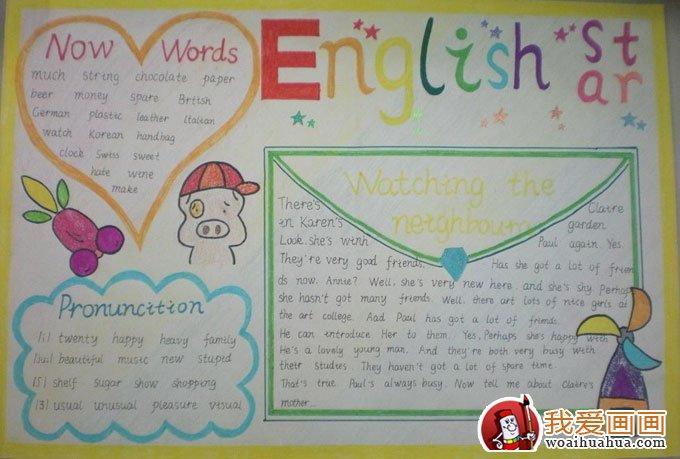 English Star
Now Words
much string chocolate paper
beer money spare British
German plastic leather Italian
watch Korean handbag
clock Swiss sweet
hate wine
make
Pronuncition
[i] twenty happy heavy family
[ju:] beautiful music new stupid
[ʃ] shelf sugar show shopping
[ʒ] usual unusual pleasure visual
Watching the
neighbours
There's Claire
in Karen's garden
Look. she's winh Paul again. Yes.
They're very good friends. Has she got a lot of frien
ds now. Annie? Well, she's very new here. and she's shy. Perhaps
she hasn't got many friends. Well, there art lots of nice girls at
the art college. Aad Paul has got a lot of friends.
He can introduce Her to them. Yes, Perhaps she's happy with
He's a lovely young man. And they're both very busy with
their studies. They haven't got a lot of spare time.
That's true. Paul's always busy. Now tell me about Claire's
mother...
我爱画画
woaihuahua.com